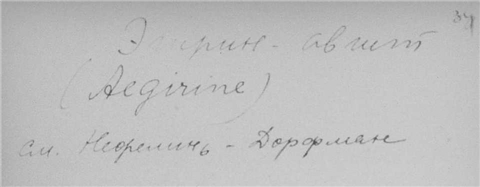 34
Эгирин - авгит
(Aegirine)
см. Нефелинъ - Дорфман